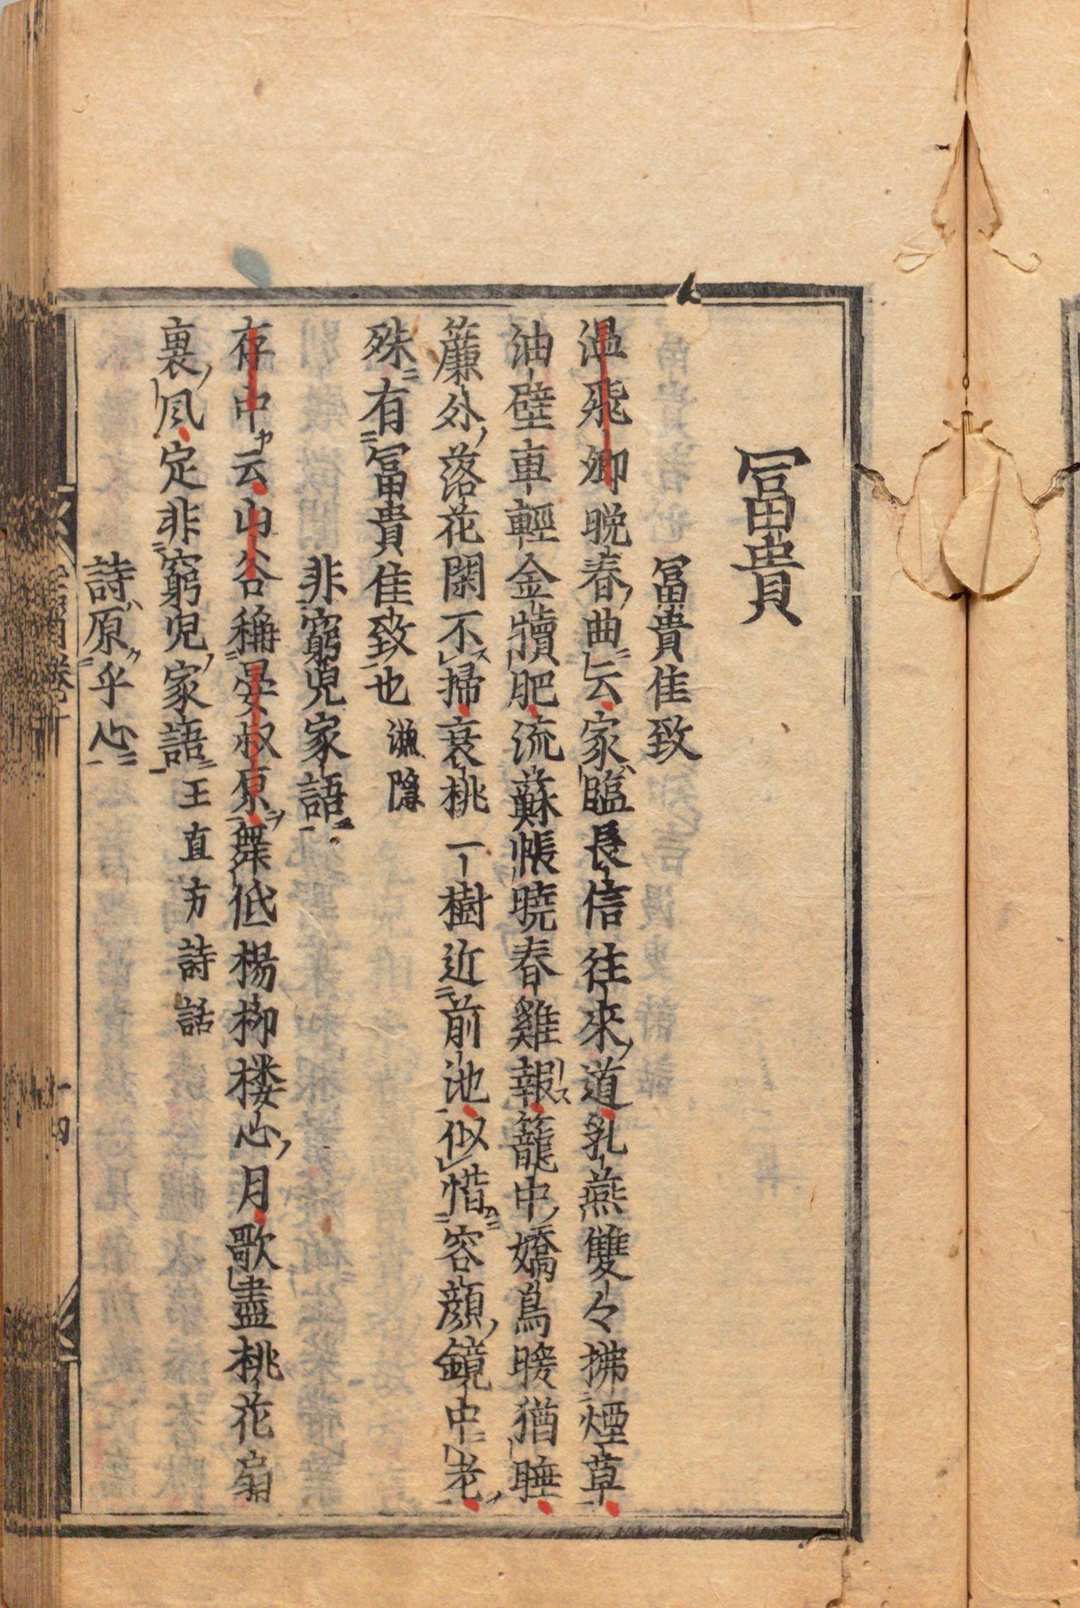 冨貴
冨貴佳致
温飛卿晩春曲云家臨長信往來道乳燕雙々拂煙草
油壁車輕金犢肥流蘇帳曉春雞報籠中嬌鳥暖猶睡
簾外落花閑不掃衰桃一樹近前池似惜容顔鏡中老
殊有冨貴佳致也 漁隱
非窮児家語
存中云山谷稱晏叔原舞低楊柳楼心月歌盡桃花扇
裏風定非窮児家語王直方詩話
詩原乎心